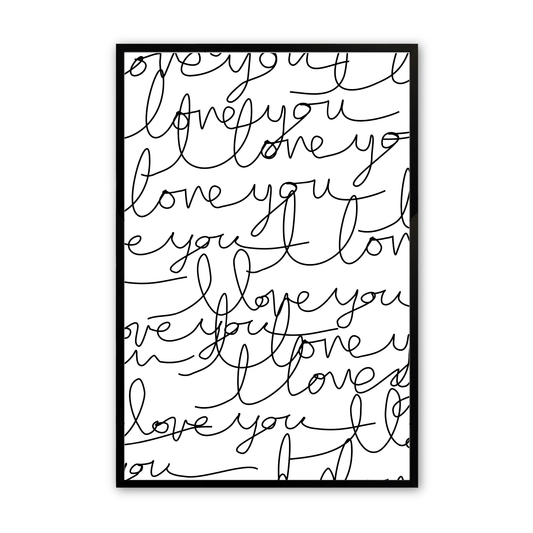 ove you I l
love you
I love yo
love you
e you I lov
I love you
ove you
u I love y
I love
love you I l
you